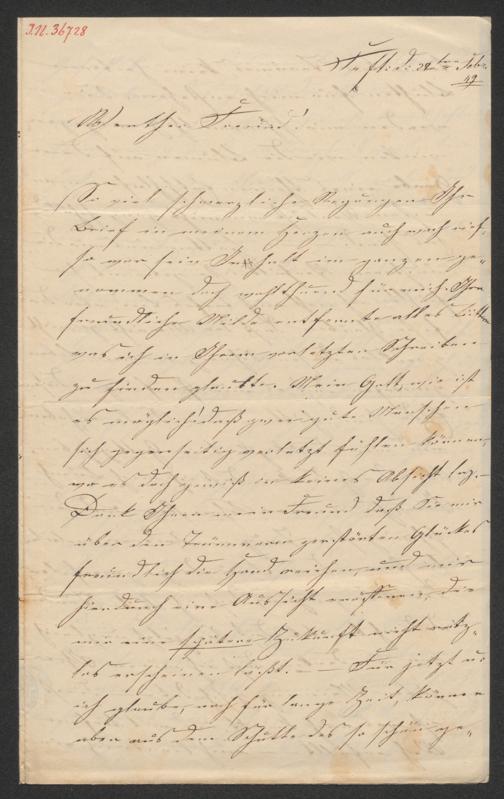 I.N. 36728
Pesth d. 28ten Feb.
49
Werther Freund!
So viel schmerzliche Regungen Ihr
Brief in meinem Herzen auch wach rief,
so war sein Inhalt im ganzen ge-
nommen doch wohlthuend für mich. Ihre
freundliche Milde entfernte alles Bittere
was ich in Ihrem vorletzten Schreiben
zu finden glaubte. Mein Gott, wie ist
es möglich! daß zwei gute Menschen
sich gegenseitig verletzt fühlen können,
wo es doch gewiß in keines Absicht lag.
Dank Ihnen mein Freund daß Sie mir
über den Trümmern zerstörten Glückes
freundlich die Hand reichen, und mir
hiedurch eine Aussicht eröffnen, die
mir eine spätere Zukunft nicht nutz-
los erscheinen läßt. — Für jetzt u:
ich glaube, noch für lange Zeit, können
aber aus dem Schutte des so schön ge-